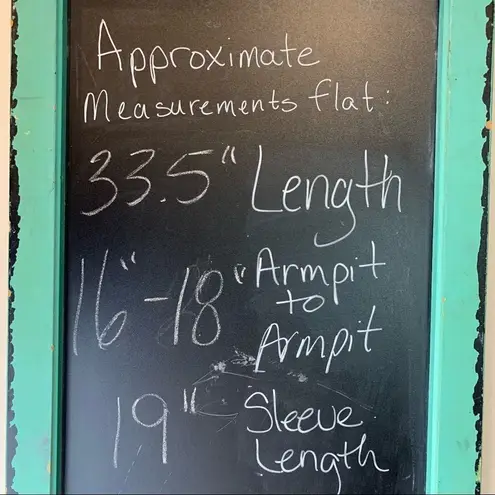 Approximate
Measurements flat:
33.5" Length
16"-18" Armpit
to
Armpit
19" Sleeve
Length